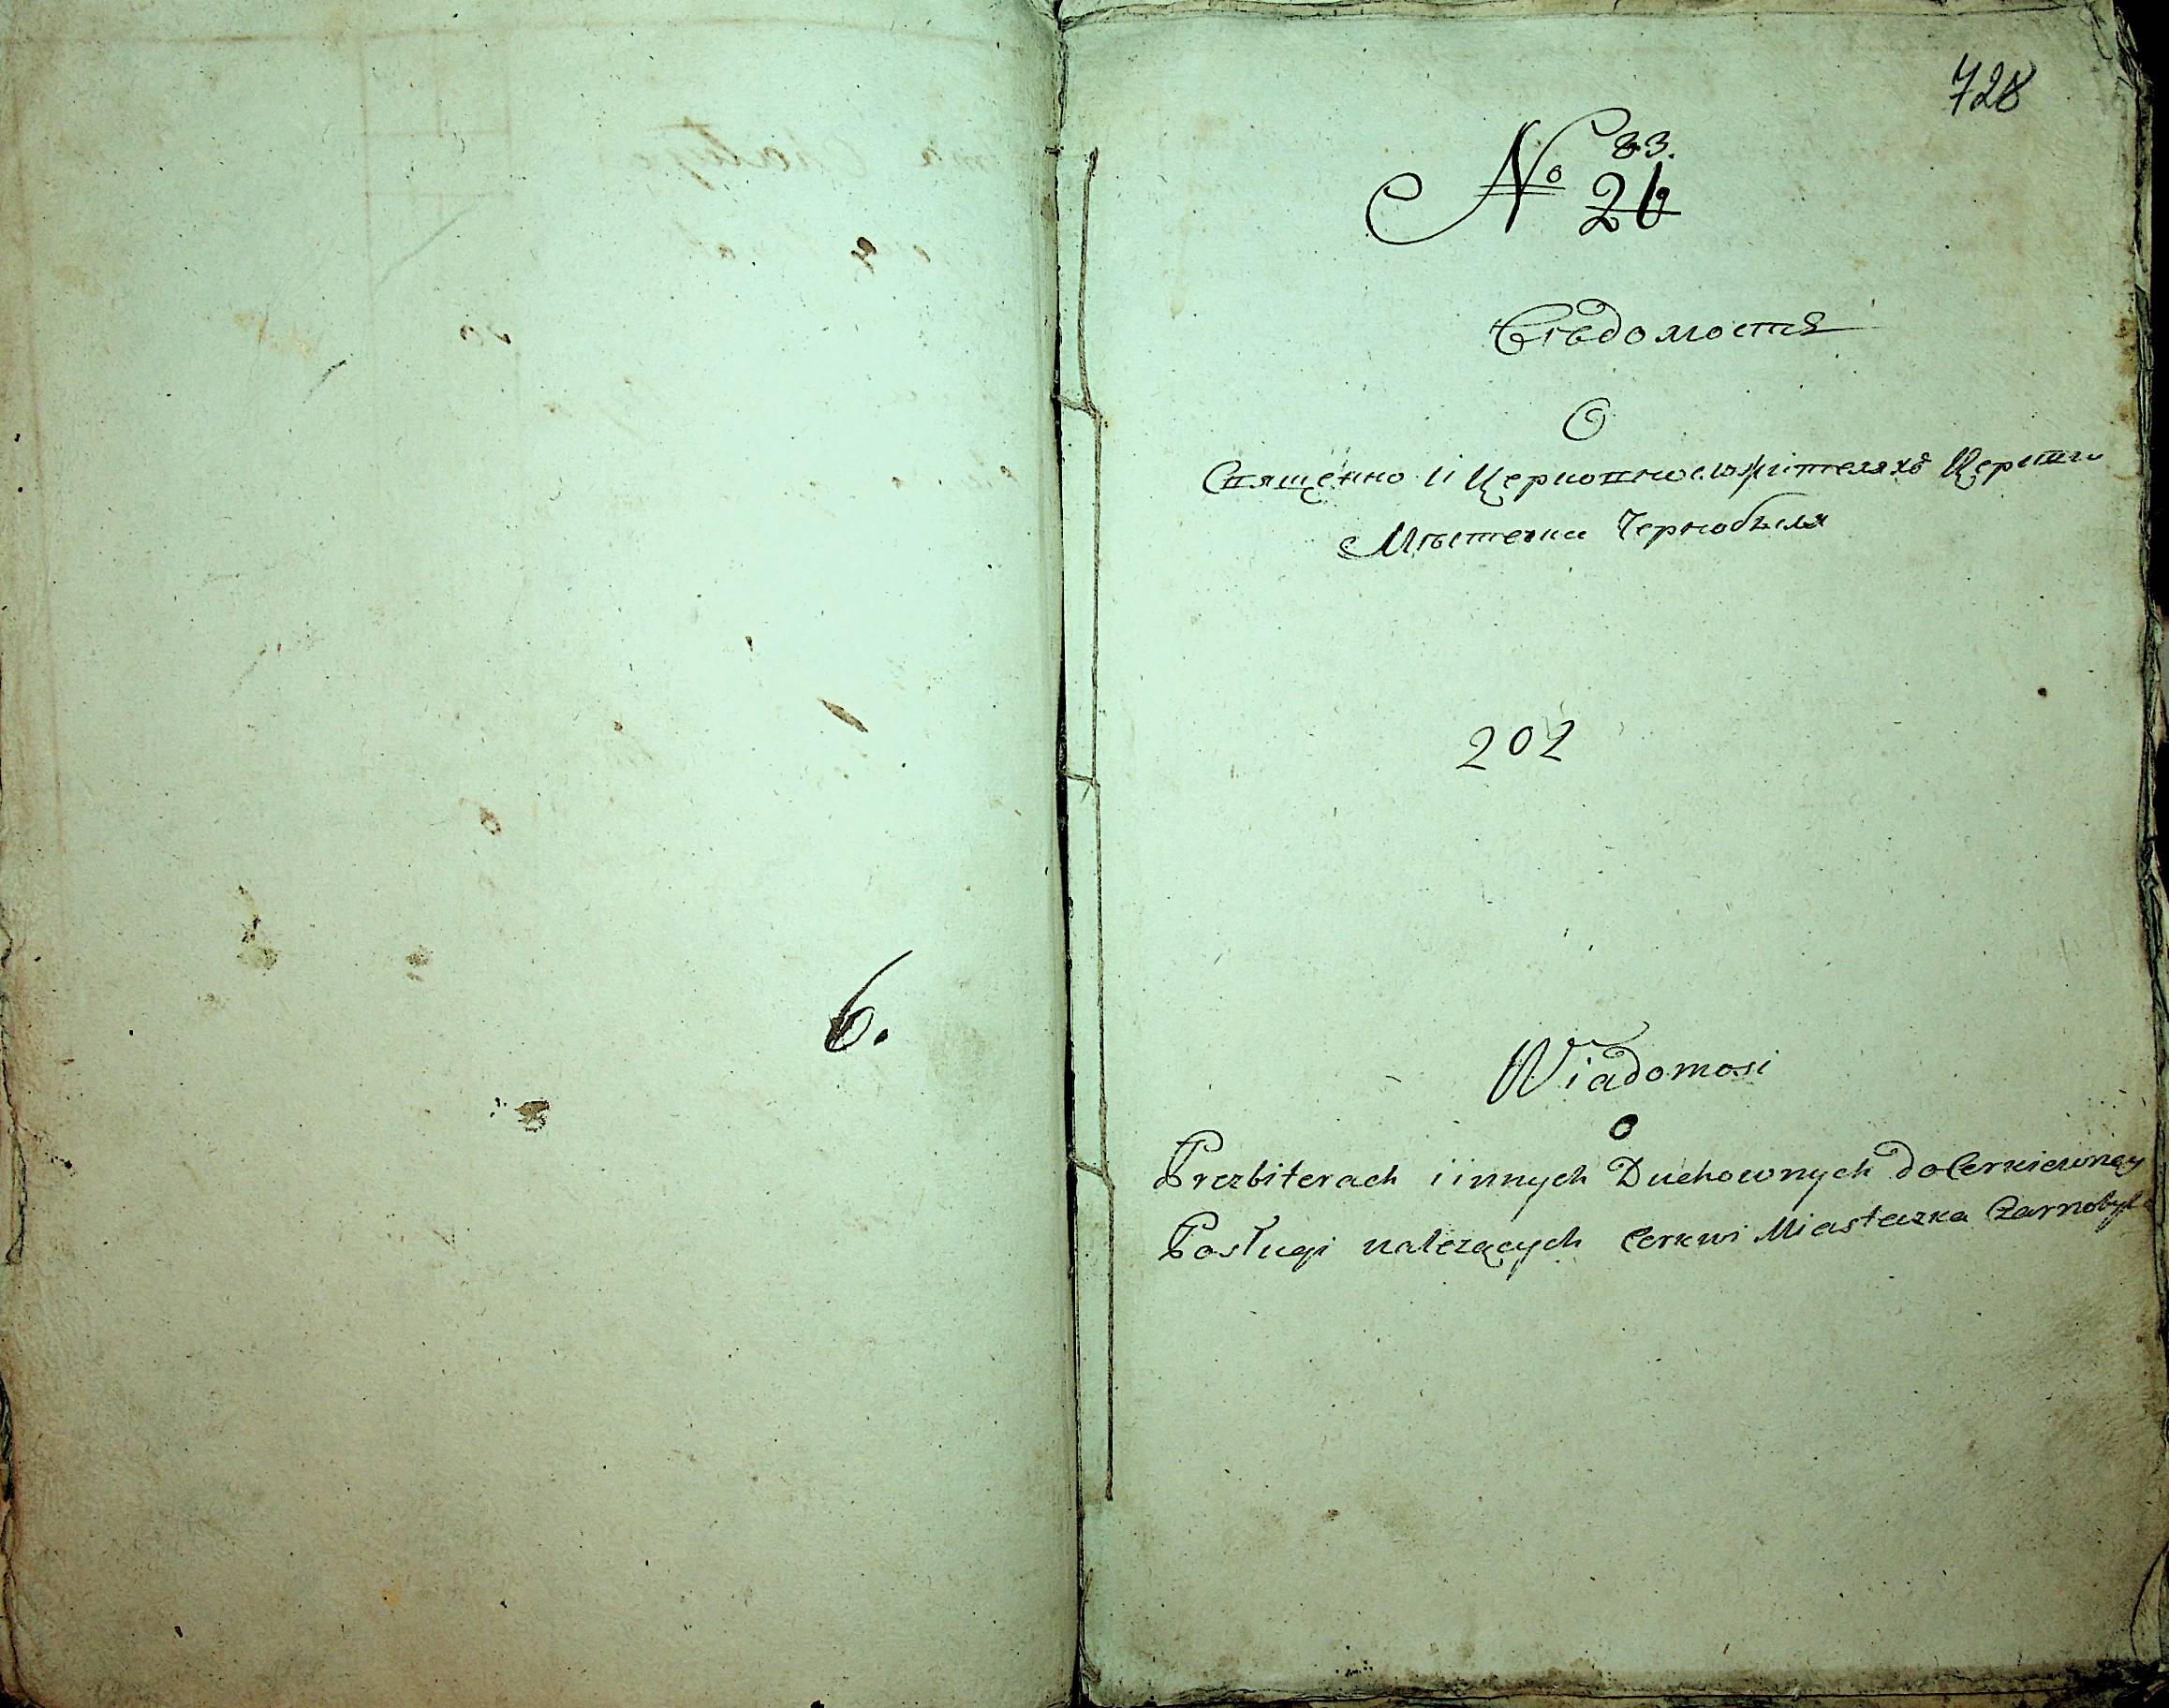 6.
728
83.
№ 26
Вѣдомость
О
Священно и Церковнослужителяхъ Церкви
Мѣстечка Чернобыля
202
Wiadomosi
o
Prezbiterach i innych Duchownych do Cerkiewney
Posługi należących Cerkwi Miasteczka Czarnobyla